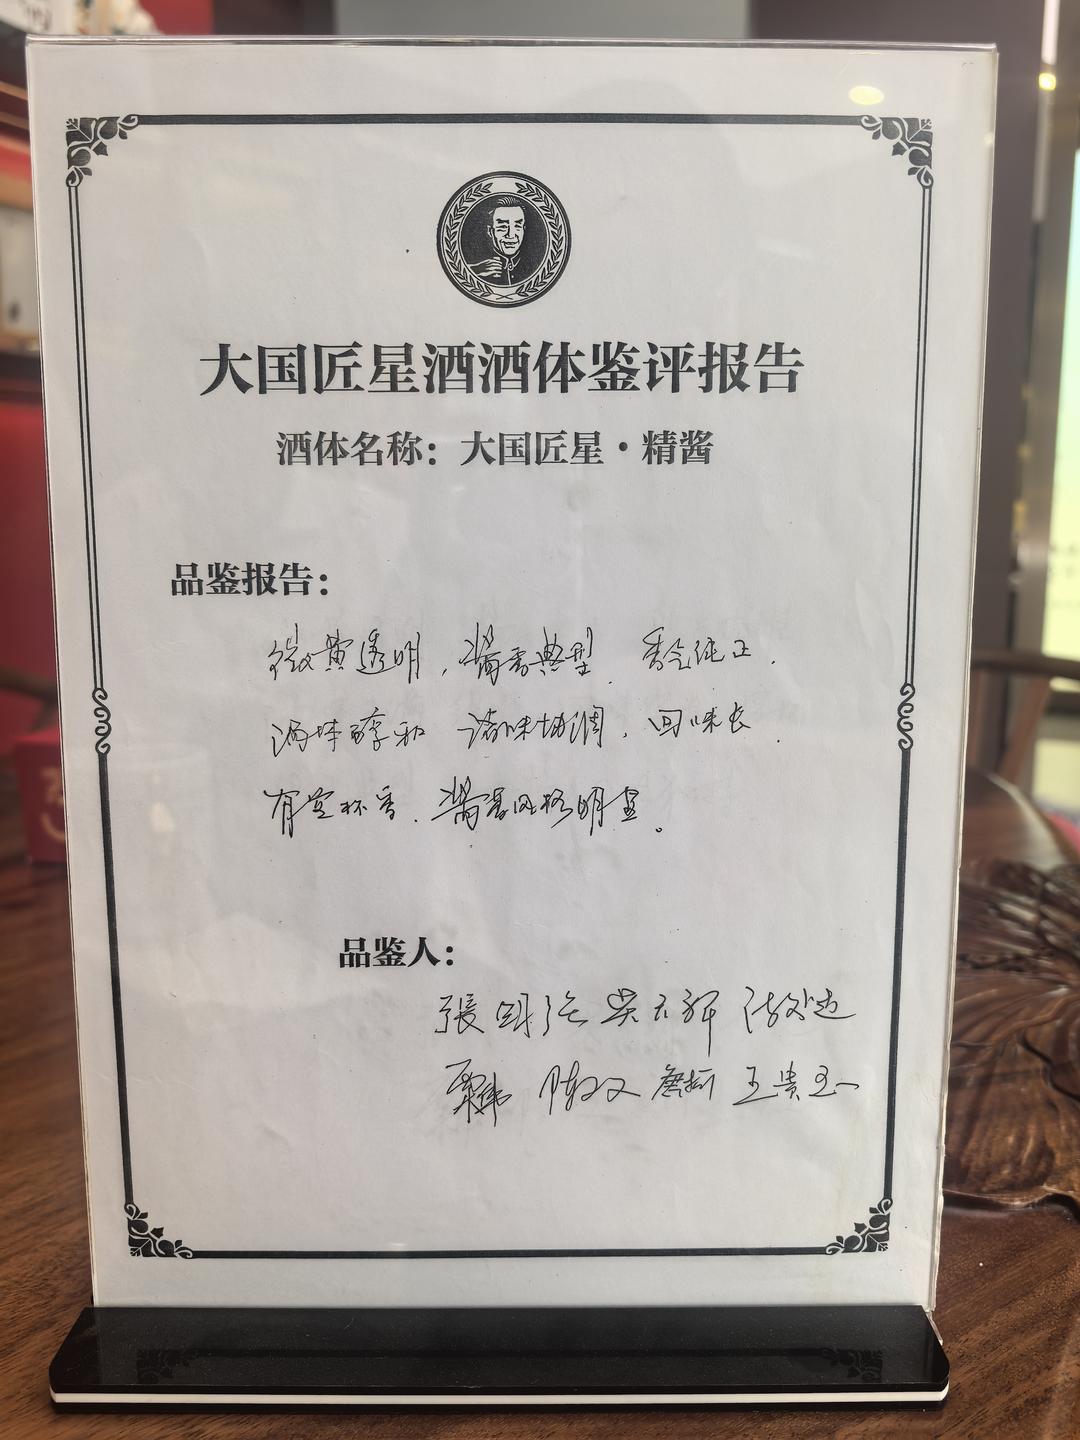 大国匠星酒酒体鉴评报告
酒体名称：大国匠星·精酱
品鉴报告：
微黄透明，酱香典型、香气纯正、
酒体醇和 诸味协调，回味长、
有空杯香、酱香风格明显。
品鉴人：
張
陈 王贵玉